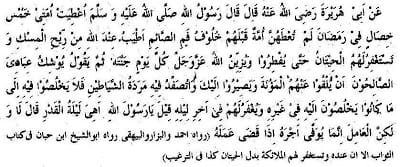 عَنْ اَبِیْ هُرَیْرَةَ رَضِیَ اللهُ عَنْهُ قَالَ قَالَ رَسُوْلُ اللهِ صَلَّی اللهُ عَلَیْهِ وَ سَلَّمَ اُعْطِیَتْ اُمَّتِیْ خَمْسَ
خِصَالٍ فِیْ رَمَضَانَ لَمْ تُعْطَهُنَّ اُمَّةٌ قَبْلَهُمْ خَلُوْفُ فَمِ الصَّائِمِ اَطْیَبُ عِنْدَ اللهِ مِنْ رِیْحِ الْمِسْكِ وَ
تَسْتَغْفِرُ لَهُمُ الْحِیْتَانُ حَتّٰی یُفْطِرُوْا وَیُزَیِّنُ اللهُ عَزَّوَجَلَّ كُلَّ یَوْمٍ جَنَّتَهٗ ثُمَّ یَقُوْلُ یُوْشِكُ عِبَادِیَ
الصَّالِحُوْنَ اَنْ یُّلْقُوْا عَنْهُمُ الْمَؤُنَةَ وَیَصِیْرُوْا اِلَیْكِ وَتُصَفَّدُ فِیْهِ مَرَدَةُ الشَّیَاطِیْنِ فَلَا یَخْلُصُوْا فِیْهِ اِلٰی
مَا كَانُوْا یَخْلُصُوْنَ اِلَیْهِ فِیْ غَیْرِهٖ وَیُغْفَرُلَهُمْ فِیْ اٰخِرِ لَیْلِهٖ قِیْلَ یَارَسُوْلَ اللهِ اَهِیَ لَیْلَةُ الْقَدْرِ قَالَ لَا وَ
لٰكِنَّ الْعَامِلَ اِنَّمَا یُوَفّٰی اَجْرُهٗ اِذَا قَضٰی عَمَلَهٗ (رواه احمد والبزاروالبیهقی رواه ابوالشیخ ابن حبان فی كتاب
الثواب الا ان عنده وتستغفر لهم الملائكة بدل الحیتان كذا فی الترغیب)